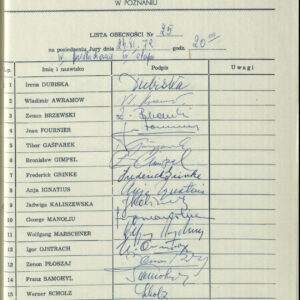 W POZNANIU
LISTA OBECNOŚCI Nr 25
na posiedzeniu Jury dnia 24.XI.72 godz. 20 00
L.p. Imię i nazwisko Podpis Uwagi
1 Irena DUBISKA Dubiska
2 Władimir AWRAMOW
3 Zenon BRZEWSKI
4 Jean FOURNIER
5 Tibor GAŠPAREK
6 Bronisław GIMPEL Gimpel
7 Frederick GRINKE Frederick Grinke
8 Anja IGNATIUS Anja Ignatius
9 Jadwiga KALISZEWSKA
10 George MANOLIU
11 Wolfgang MARSCHNER
12 Igor OJSTRACH
13 Zenon PŁOSZAJ
14 Franz SAMOHYL Samohyl
15 Werner SCHOLZ Scholz